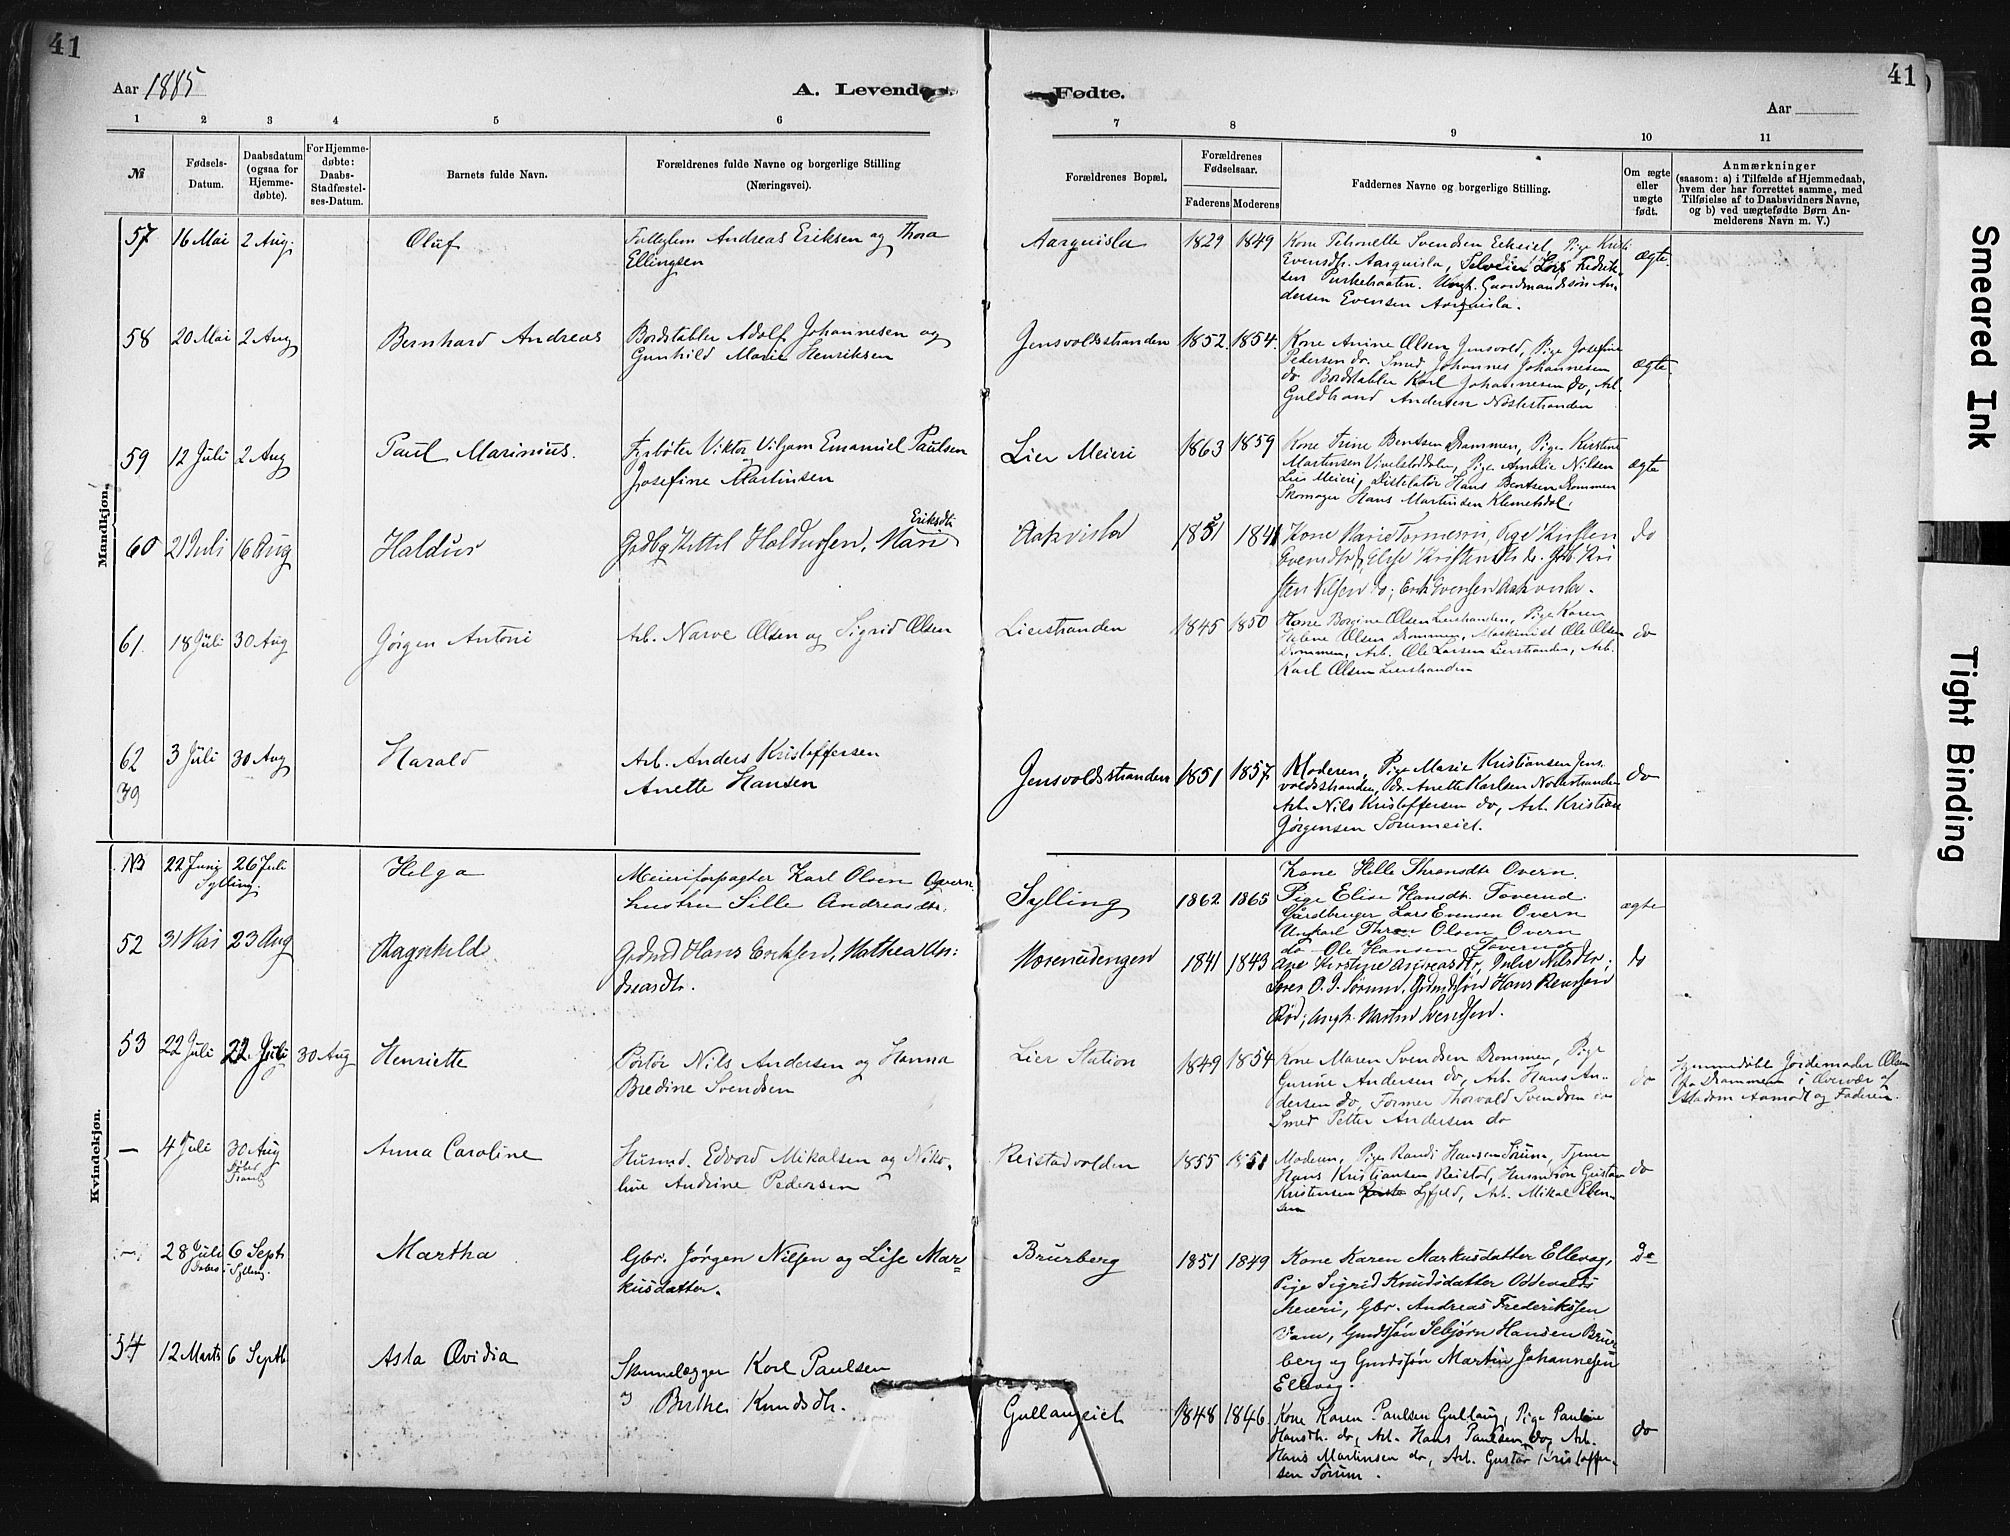 41
41
Aar 1885
A. Levende
Fødte.
Aar
1 2 3 4 5 6 7 8 9 10 11
№
Fødsels-Datum.
Daabsdatum (ogsaa for Hjemme-døbte).
For Hjemme-døbte: Daabs-Stadfæstel-ses-Datum.
Barnets fulde Navn.
Forældrenes fulde Navne og borgerlige Stilling (Næringsvei).
Forældrenes Bopæl.
Forældrenes Fødselsaar.
Faderens Moderens
Faddernes Navne og borgerlige Stilling.
Om ægte eller uægte født.
Anmærkninger
(saasom: a) i Tilfælde af Hjemmedaab,
hvem der har forrettet samme, med
Tilføielse af to Daabsvidners Navne,
og b) ved uægtefødte Børn An-
melderens Navn m. V.)
Mandkjøn.
57 16 Mai 2 Aug. Oluf
Andreas Eriksen og Thora
Ellingsen
Aarquisla 1829 1849
Kone Petronelle Svendsen Pige
Evensdtr. Aarquisla, Lars Fredrik-
sen Gaardmandssøn An-
dersen Evensen Aarquisla.
ægte.
58 20 Mai 2 Aug Bernhard Andreas
Bordstabler Adolf Johannesen og
Gunhild Marie Henriksen
Gensvoldsstranden 1852. 1854.
Kone Anine Olsen Gensvold, Pige Josefine
Pedersen do. Smed Johannes Johannesen
do Bordstabler Karl Johannesen do, Arb.
Guldbrand Andersen Nøstestranden
ægte.
59 12 Juli 2 Aug Paul Marinius.
Fyrbøter Viktor Viljam Emanuel Paulsen
Josefine Martinsen
Lier Meieri 1863 1859
Kone Trine Bentsen Drammen, Pige Kirstine
Martinsen Pige Amalie Nilsen
Lier Meieri, Distilatør Hans Bentsen Drammen
Skomager Hans Martinsen Klemetsdal.
ægte
60 21 Juli 16 Aug Haldus
Kittil Haldussen, Mari
Eriksdtr
Aakvisla 1841
Kone Marie Pige Kirsten
Evensdtr
sten Nilsen do; Erik Evensen Aakvisla.
do
61. 18 Juli 30 Aug Jørgen Antoni
Arb. Narve Olsen og Sigrid Olsen
Lierstranden 1845 1850
Kone Olsen Lierstranden, Pige Karen
Olsen Drammen, Maskinist Ole Olsen
Drammen, Arb. Ole Larsen Lierstranden, Arb.
Karl Olsen Lierstranden
do
62 3 Juli 30 Aug Harald
39
Arb. Anders Kristoffersen
Anette Hansen
Gensvoldsstranden 1851 1857
Moderen, Pige Marie Kristiansen Gens-
voldsstranden, do. Anette Karlsen Nøstestranden
Arb. Nils Kristoffersen do, Arb. Kristian
Jørgensen
do
Kvindekjøn.
NB 22 Juni 26 Juli Helga
Sylling.
Meieriforpagter Karl Olsen Overn
hustru Sille Andreasdtr.
Sylling 1862 1865
Kone Helle Overn.
Pige Elise Hansdt. Toverud.
Gårdbruger Lars Evensen Overn
Ungkarl Olsen Overn
do Ole Hansen Toverud
ægte
52 31 Mai 23 Aug Ragnhild.
Hans Eriksen, Mathea An:
dreasdtr.
1841 1843
Ane Kirstine Andreasdtr, Nilsdtr;
Hans
do
53 22 Juli 22 Juli 30 Aug Henriette
Portør Nils Andersen og Hanna
Bredine Svendsen
Lier Station 1849 1854
Kone Maren Svendsen Drammen, Pige
Gurine Andersen do, Arb. Hans An-
dersen do, Former Thorvald Svendsen do
Smed Petter Andersen do
do
Hjemmedøbt Jordemoder Olsen
fra Drammen i Overvær af
Madam Aamodt og Faderen.
— 4 Juli 30 Aug Anna Caroline
Husmd. Edvard Mikalsen og Niko-
line Andrine Pedersen
Reistadvolden 1855 1851
Moderen, Pige Randi Hansen Sørum, Tjener
Hans Kristiansen Reistad, Husmdsøn Gustav
Kristensen Arb. Mikal Eben-
sen
do
— 28 Juli 6 Sept. Martha
Døbt i Sylling.
Gbr. Jørgen Nilsen og Lise Mar-
kusdatter.
Brurberg 1851 1849
Kone Karen Markusdatter Ellevag,
Pige Sigrid Knudsdatter Oddevalds
Meieri, Gbr. Andreas Frederiksen
Gmdssøn Sebjørn Hansen Brur-
berg og Gmdssøn Martin Johannesen
Ellevag.
Do
54 12 Marts 6 Septb. Asta Ovidia
Karl Paulsen
og Birthe Knudsdtr.
Gullaugeiet 1848 1846.
Kone Karen Paulsen Gullaug, Pige Pauline
Hansdtr. do, Arb. Hans Paulsen do, Arb.
Hans Martinsen do, Arb. Gustav Kristoffer-
sen Sørum.
do
Smeared Ink
Tight Binding